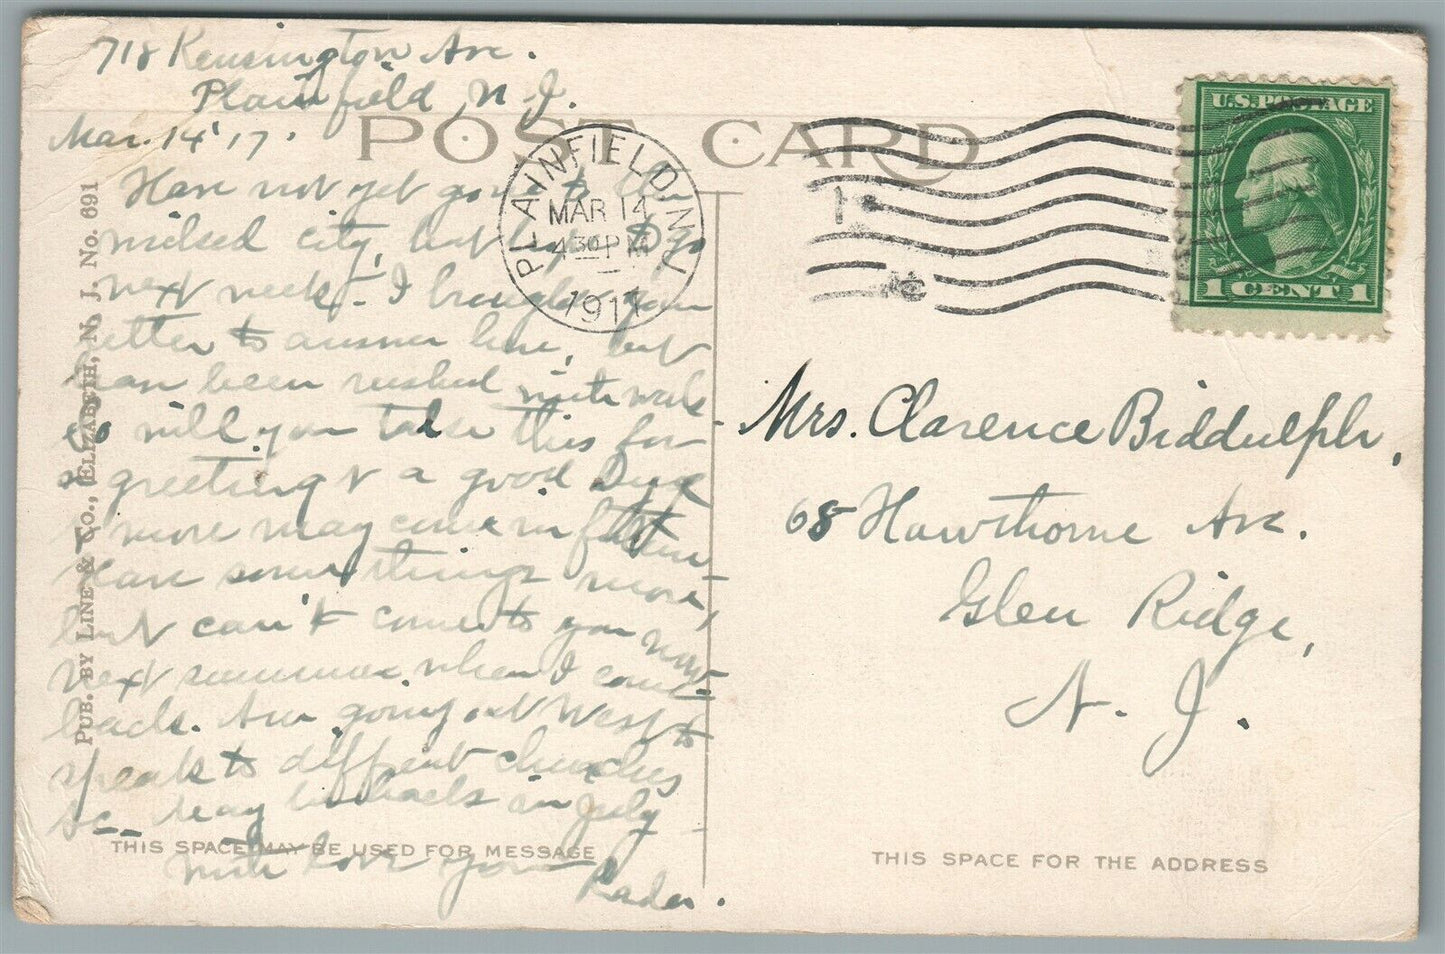 718 Kensington Ave.
Plainfield, N. J.
Mar. 14 '17.
POST CARD
PLAINFIELD, N.J.
MAR 14
4 30 PM
1917
U.S. POSTAGE
1 CENT 1
Have not yet gone to the
wicked city, but hope to go
next week. I brought your
letter to answer here, but
have been rushed with work
so will you take this for
a greeting & a good
more may come in
Have some things more,
but can't come to you now
next summer when I come
back. Am going out West to
speak to different churches
&c - may be back in July
with love your
Mrs. Clarence Biddulph,
68 Hawthorne Ave.
Glen Ridge,
N. J.
PUB. BY LINE & CO., ELIZABETH, N. J. No. 691
THIS SPACE MAY BE USED FOR MESSAGE
THIS SPACE FOR THE ADDRESS